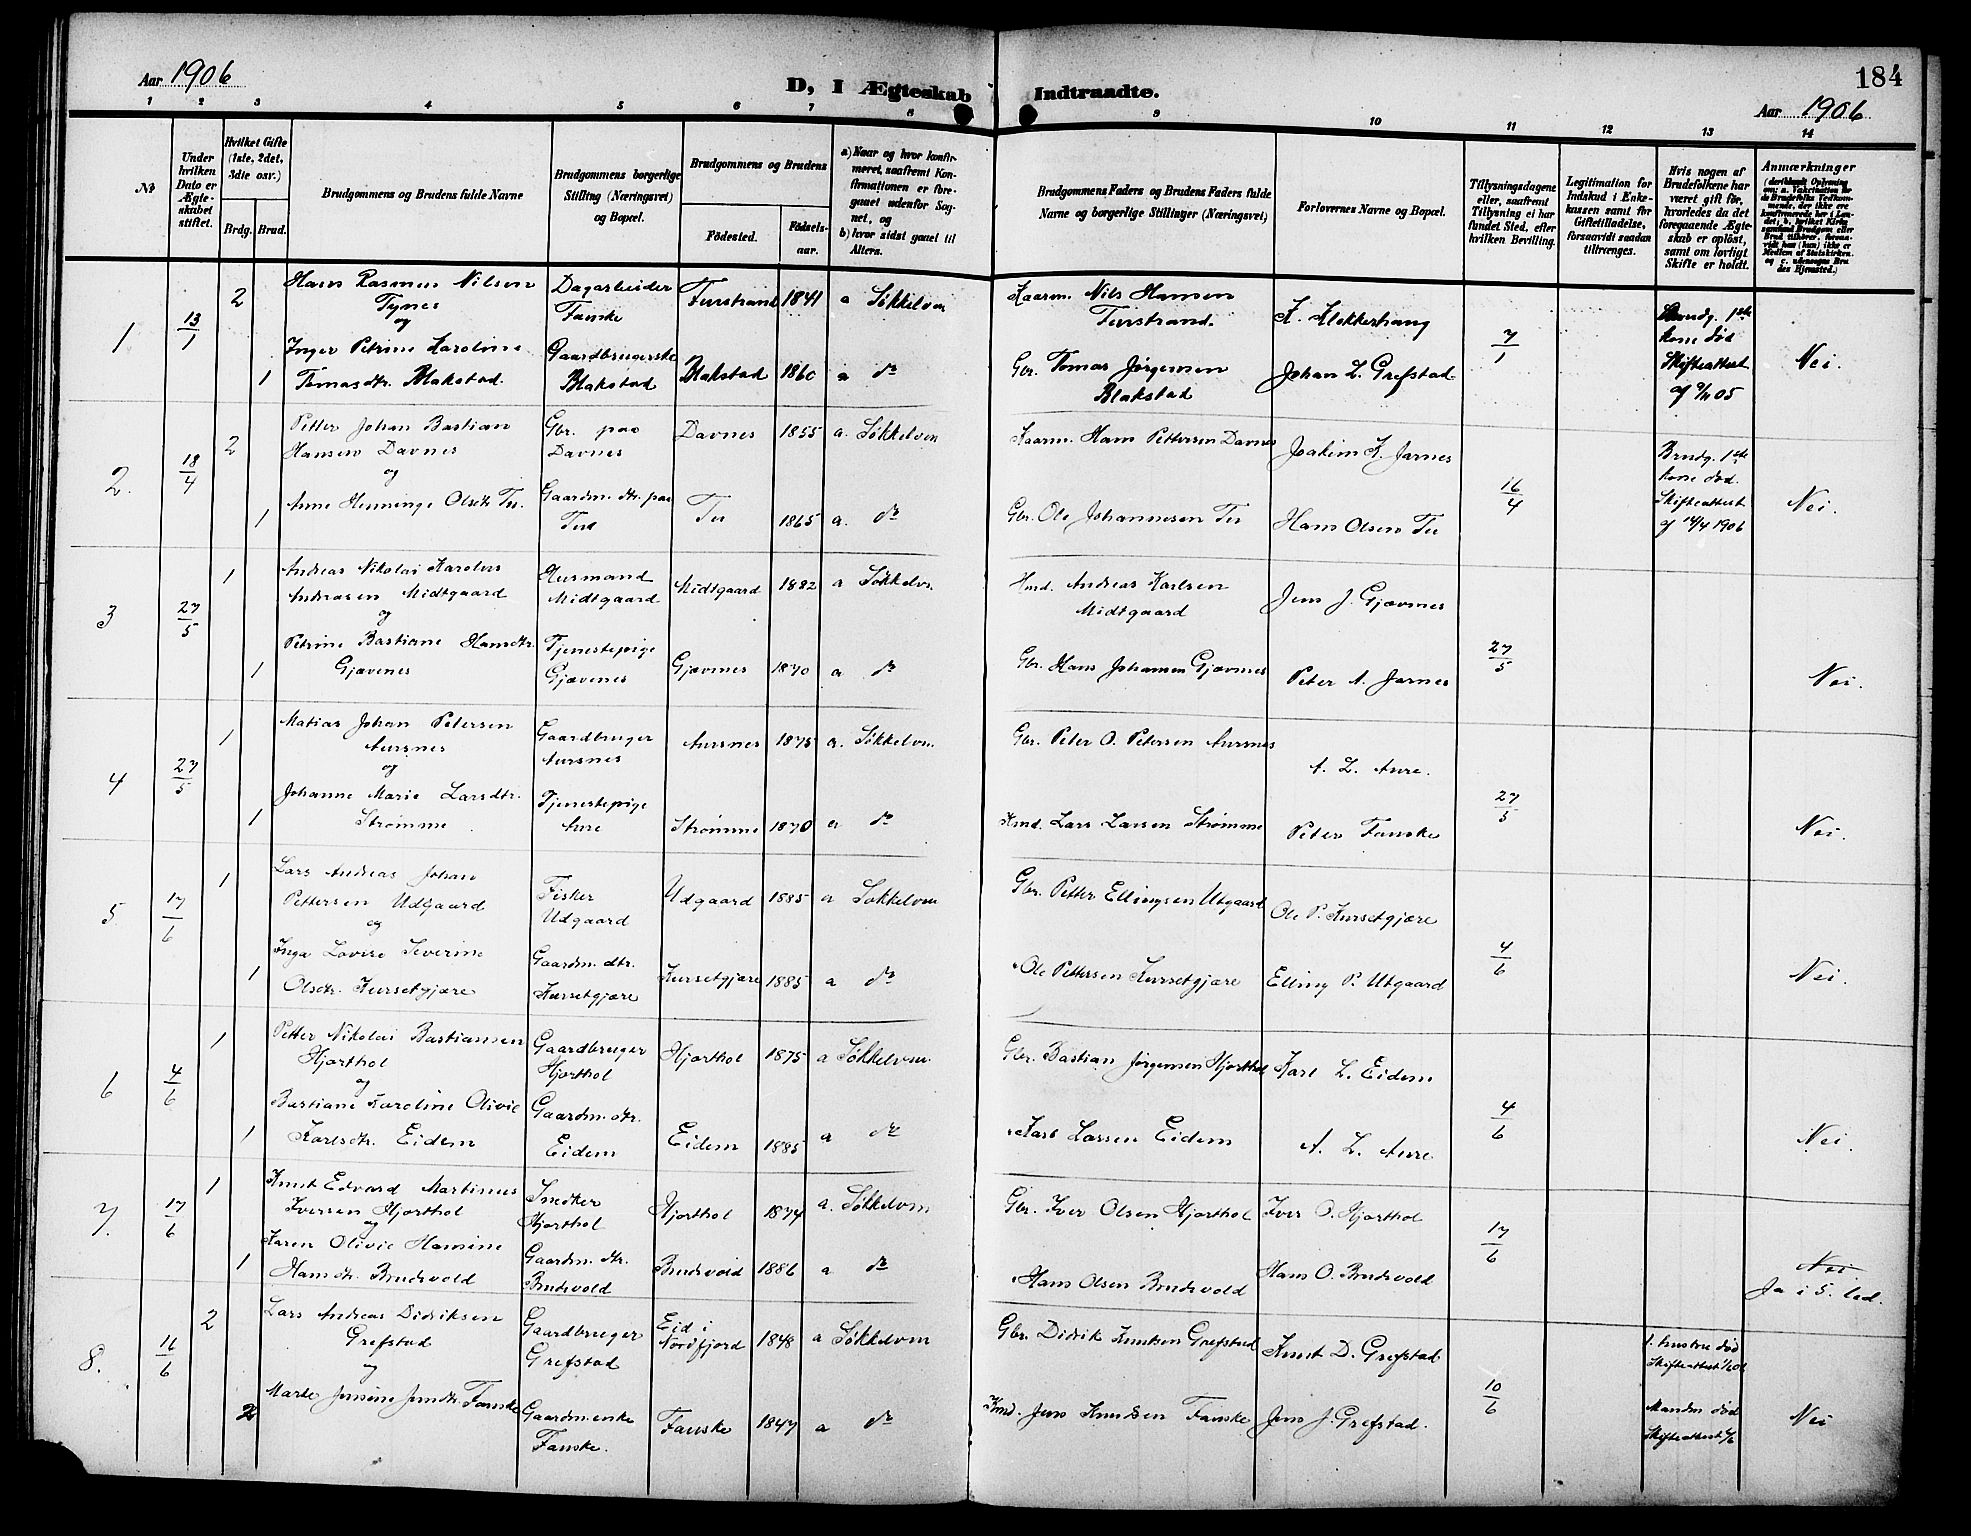 184
Aar 1906
D, I Ægteskab Indtraadte.
Aar 1906
1 2 3 4 5 6 7 8 9 10 11 12 13 14
No
Under hvilken Dato er Ægteskabet stiftet.
Hvilket Gifte (1ste, 2det, 3die osv.)
Brdg. Brud.
Brudgommens og Brudens fulde Navne
Brudgommens borgerlige Stilling (Næringsvei) og Bopæl.
Brudgommens og Brudens
Fødested.
Fødselsaar.
a) Naar og hvor konfirmeret, saafremt Konfirmationen er foregaaet udenfor Sognet, og
b) hvor sidst gaaet til Alters.
Brudgommens Faders og Brudens Faders fulde Navne og borgerlige Stillinger (Næringsvei)
Forlovernes Navne og Bopæl.
Tillysningsdagene eller, saafremt Tillysning ei har fundet Sted, efter hvilken Bevilling.
Legitimation for Indskud i Enkekassen samt for Giftetilladelse, forsaavidt saadan tiltrænges.
Hvis nogen af Brudefolkene har været gift før, hvorledes da det foregaaende Ægteskab er opløst, samt om lovligt Skifte er holdt.
Anmærkninger
1 13/1 2 Hans Rasmus Nilsen Tynes Dagarbeider Fauske Turstrand 1841 a Søkkelven Kaarm. Nils Hansen Turstrand. K. Klokkerhaug 7/1 Brudg. 1ste kone død Skifteattest
og
1 Inger Petrine Karoline Tomasdtr. Blakstad. Gaardbrugerske Blakstad Blakstad 1860 a do Gbr. Tomas Jørgensen Blakstad Johan L. Grefstad Nei.
2. 18/4 2 Petter Johan Bastian Hansen Davnes Gbr. paa Davnes Davnes 1855 a. Søkkelven Kaarm. Hans Pettersen Davnes Joakim K. Jarnes 16/4 Brudg. 1ste kone død. Skifteattest af 14/4 1906
og
1 Anne Henninge Olsdtr. Tu. Gaardm. dtr. paa Tu 1865 a. do Gbr. Ole Johannesen Tu Hans Olsen Tu Nei.
3 27/5 1 Andreas Nikolai Karolus Andreasen Midtgaard Husmand Midtgaard Midtgaard 1882 a Søkkelven Hmd. Andreas Karlsen Midtgaard Jens J. Gjævenes 27/5
og
1 Petrine Bastiane Hansdtr. Gjævenes Tjenestepige Gjævenes Gjævnes 1870 a do Gbr. Hans Johansen Gjævnes Peter A. Jarnes Nei.
4 27/5 1 Matias Johan Petersen Aursnes Gaardbruger Aursnes Aursnes 1875 a. Søkkelven. Gbr. Peter O. Petersen Aursnes A. L. Aure. 27/5
og
1 Johanne Marie Larsdtr. Strømme Tjenestepige Aure Strømme 1870 a do Hmd. Lars Larsen Strømme Peter Fauske Nei.
5 17/6 1 Lars Andreas Johan Pettersen Udgaard Fisker Udgaard Udgaard 1885 a Søkkelven Gbr. Petter Ellingsen Utgaard Ole P. Kursetgjære 4/6
og
1 Inga Lovise Severine Olsdtr. Kursetgjære Gaardm. dtr. Kursetgjære Kursetgjære 1885 a do Ole Pettersen Kursetgjære Elling P. Utgaard Nei.
6 4/6 1 Petter Nikolai Bastiansen Hjorthol Gaardbruger Hjorthol Hjorthol 1875 a Søkkelven Gbr. Bastian Jørgensen Hjorthol Karl L. Eidem 4/6
og
1 Bastiane Karoline Olivie Karlsdtr. Eidem Gaardm. dtr. Eidem Eidem 1885 a do Karl Larsen Eidem A. L. Aure Nei.
7. 17/6 1 Knut Edvard Martinus Iversen Hjorthol Snedker Hjorthol Hjorthol 1874 a. Søkkelven Gbr. Iver Olsen Hjorthol Iver O. Hjorthol 17/6
og
1 Karen Olivie Hansine Hansdtr. Brudevold Gaardm. dtr. Brudevold Brudevold 1886 a do Hans Olsen Brudevold Hans O. Brudevold Nei. Ja i 5. led.
8. 16/6 2 Lars Andreas Didriksen Grefstad Gaardbruger Grefstad Eid i Nordfjord 1848 a Søkkelven Gbr. Didrik Knutsen Grefstad Knut D. Grefstad 10/6 1. hustru død Skifteattest
og
2 Marte Jensine Jensdtr. Fauske Gaardm. enke Fauske. Fauske 1847 a do Hmd. Jens Knudsen Fauske Jens J. Grefstad. Manden død Skifteattest Nei